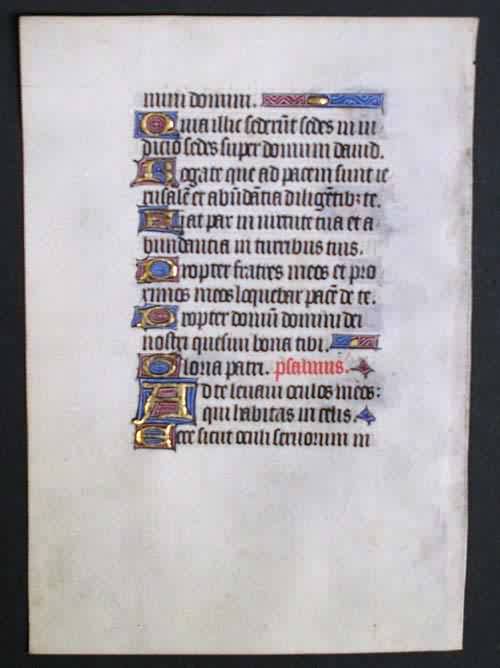 mini domini.
Quia illic sederūt sedes in iu
dicio sedes super domum dauid.
Rogate que ad pacem sunt ie
rusalē et abūdātia diligētibꝫ te.
Fiat pax in uirtute tua et a
bundantia in turribus tuis.
Propter fratres meos et pro
ximos meos loquebar pacē de te.
Propter domū domini dei
nostri quesiui bona tibi.
Gloria patri. psalmus.
Ad te leuaui oculos meos:
qui habitas in celis.
Ecce sicut oculi seruorum in